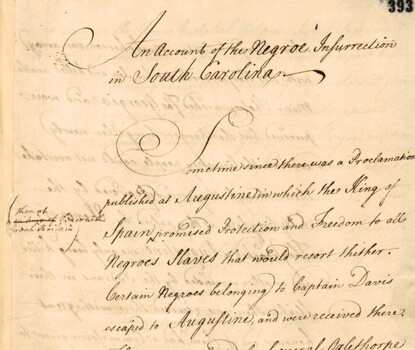 393
An Account of the Negroe Insurrection
in South Carolina
Sometime since there was a Proclamation
published at Augustine in which the King of
Spain promised Protection and Freedom to all
Negroes Slaves that would resort thither.
Certain Negroes belonging to Captain Davis
escaped to Augustine, and were received there.
General Oglethorpe